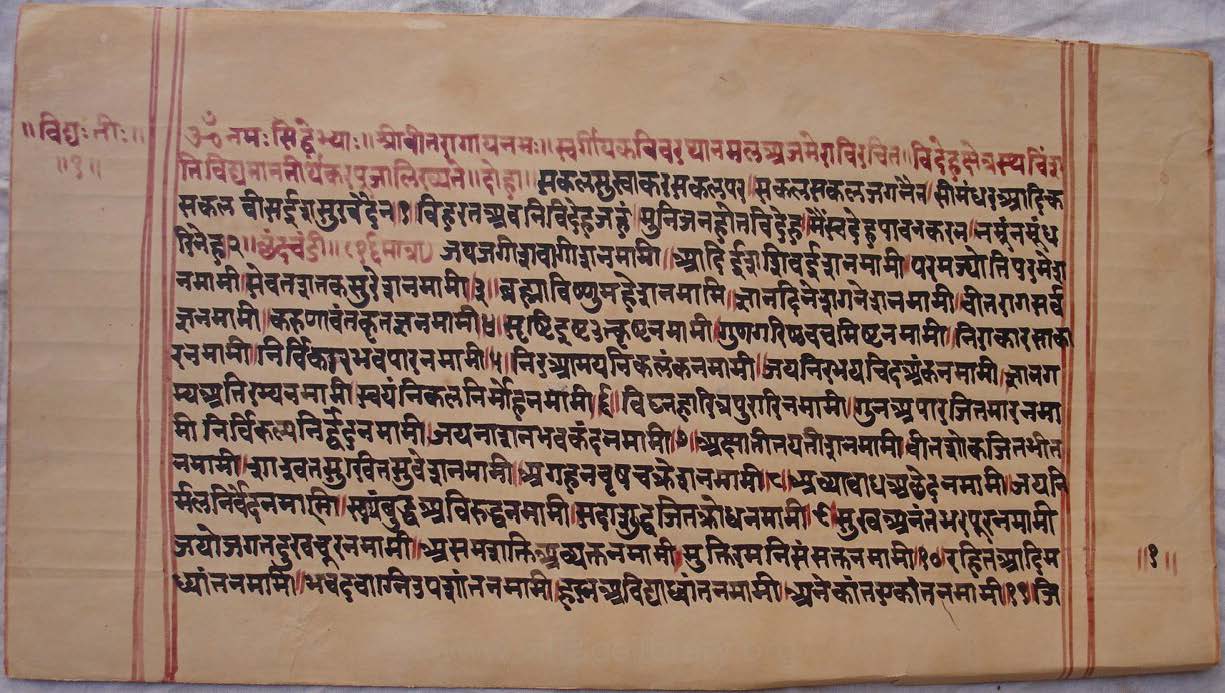 ॥विद्यःतीः॥
॥१॥
ॐ नमः सिद्धेभ्याः॥ श्रीवीतरागायनमः॥ स्वर्गीयकविवर थानमलअजमेराविरचित॥ विदेहक्षेत्रस्थविंश
तिविद्यमानतीर्थंकरपूजालिख्यते॥ दोहा॥ सकलसुखाकरसकलपर॥ सकलसकलजगनैन॥ सीमंधरआदिक
सकल वीसईशसुखदैन१ विहरतअवनिविदेहजहं॥ मुनिजनहोतविदेह॥ मैंस्वदेहपावनकरन॥ नमूंनमूंध
रिनेह२॥ छंदचंडी॥ (१६मात्रा) जयजगीशवागीशनमामी॥ आदिईशशिवईशनमामी॥ परमज्योतिपरमेश
नमामी॥ सेवतशतकसुरेशनमामी३॥ ब्रह्माविष्णुमहेशनमामि॥ ज्ञानदिनेशगनेशनमामी॥ वीतरागसर्व
ज्ञनमामी॥ करुणावंतकृतज्ञनमामी४॥ सृष्टिइष्टउत्कृष्टनमामी॥ गुणगरिष्ठवचमिष्टनमामी॥ निराकारसाका
रनमामी॥ निर्विकारभवपारनमामी५॥ निरआमयनिकलंकनमामी॥ जयनिरभयचिदअंकनमामी॥ ज्ञानग
म्यअतिरम्यनमामी॥ स्वयंनिकलनिर्मोहनमामी६॥ विघनहारित्रिपुरारिनमामी॥ गुनअपारजितमारनमा
मी निर्विकल्पनिर्द्वंदनमामी॥ जयनाशनभवकंदनमामी७॥ अक्षातीतयतीशनमामी॥ वीतशोकजितभीत
नमामी॥ शाश्वतसुखितसुवेशनमामी॥ अगहनवृषचक्रेशनमामी८॥ अव्यावाधअछेदनमामी॥ जयनि
र्मलनिर्वेदनमामि॥ स्वयंबुद्धअविरुद्धनमामी॥ सदाशुद्धजितक्रोधनमामी९॥ सुखअनंतभरपूरनमामी
जयोजगतदुखचूरनमामी॥ असमशक्तिअव्यक्तनमामी॥ मुक्तिरमनिसंसक्तनमामी१०॥ रहितआदिम
ध्यांतनमामि॥ भवदवाग्निउपशांतनमामी॥ अविद्याध्वांतनमामी॥ अनेकांतएकांतनमामी११॥ जि
॥१॥